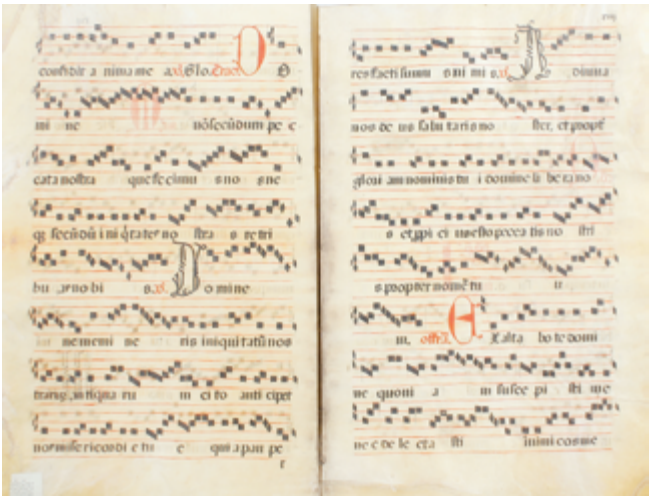 confidit anima mea. v. Glo. Tract. D O
mi ne nō secūdum pec
cata nostra que fecimus nos ne
q; secūdū iniq̄tates no stras retri
bu as nobis. v. Do mine
ne memineris iniquitatū nos
trarum antiqua ru m cito anti cipet
nos misericordi e tu e quia pau pe
r
res facti sumus nimis. v. A diuua
nos de us salutaris no ster, et propt
glori am nominis tui domine libera no
s et propi ci us esto peccatis no stri
s propter nomē tu u
m. offe. E xalta bo te domi
ne quoni a m suscepi sti me
nec dele cta sti inimicos me